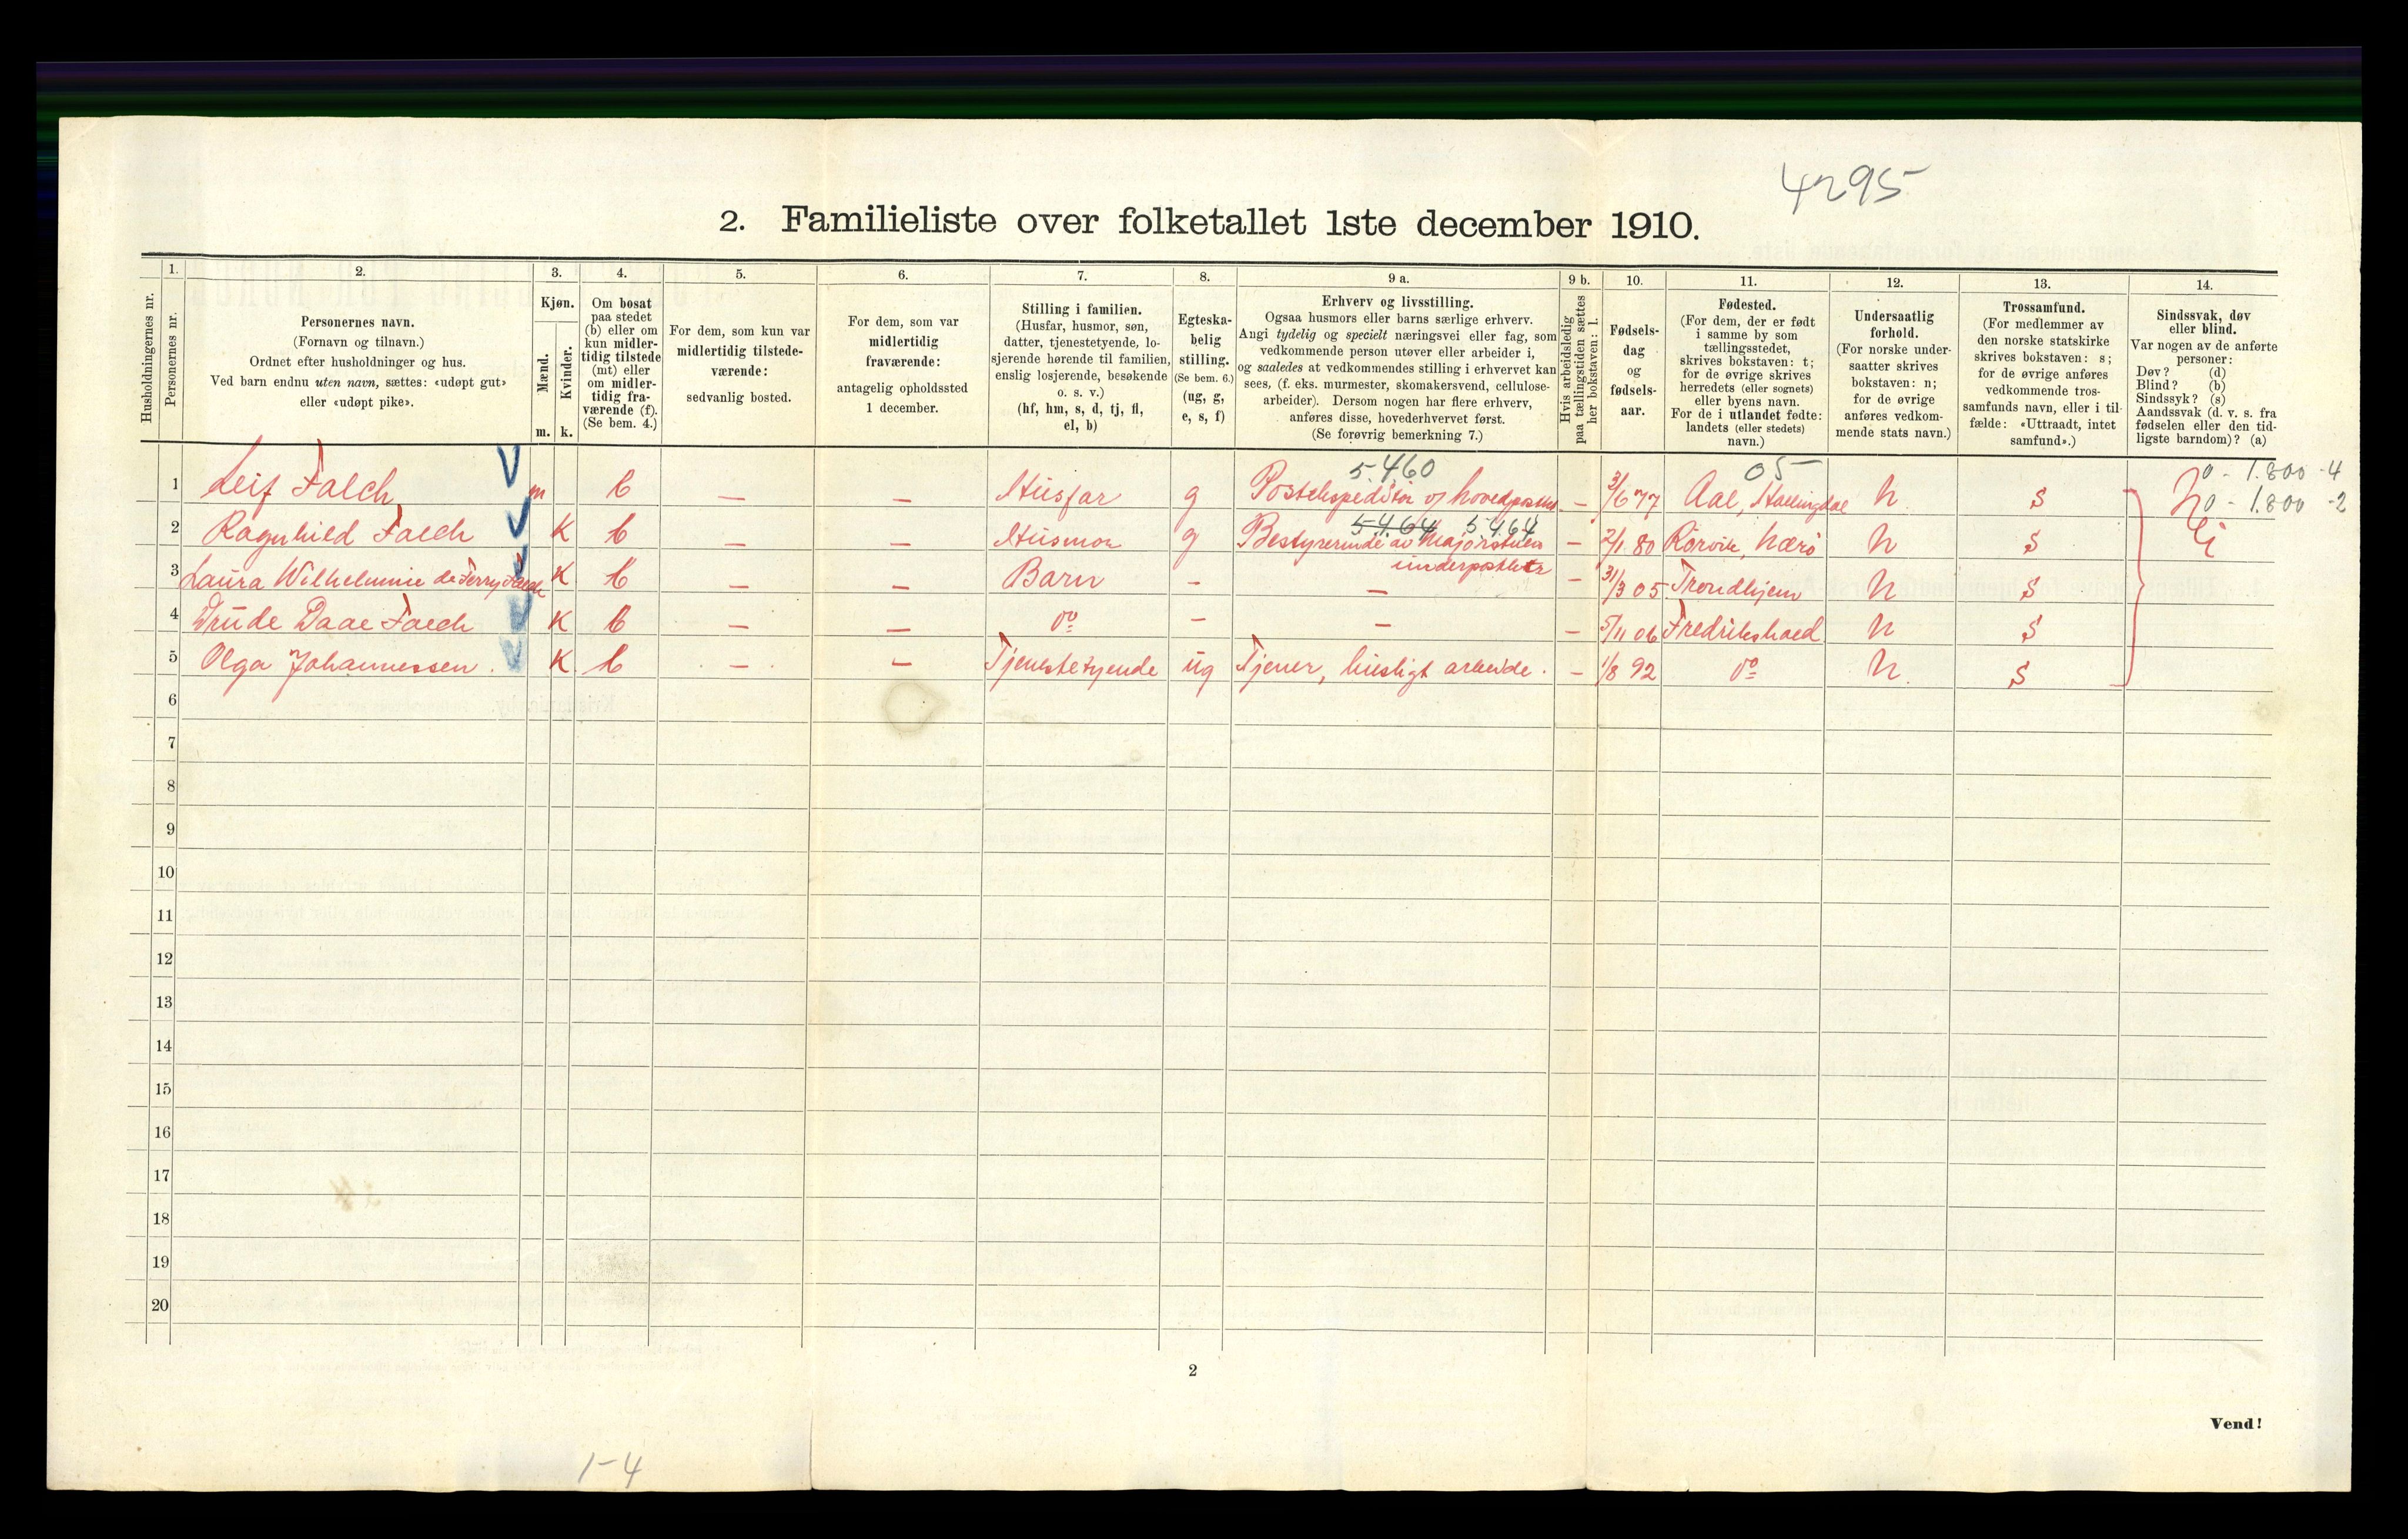 4295
2. Familieliste over folketallet 1ste december 1910.
Husholdningernes nr.
1. Personernes nr.
2. Personernes navn.
(Fornavn og tilnavn.)
Ordnet efter husholdninger og hus.
Ved barn endnu uten navn, sættes: «udøpt gut»
eller «udøpt pike».
3. Kjøn.
Mænd. m.
Kvinder. k.
4. Om bosat
paa stedet
(b) eller om
kun midler-
tidig tilstede
(mt) eller
om midler-
tidig fra-
værende (f).
(Se bem. 4.)
5. For dem, som kun var
midlertidig tilstede-
værende:
sedvanlig bosted.
6. For dem, som var
midlertidig
fraværende:
antagelig opholdssted
1 december.
7. Stilling i familien.
(Husfar, husmor, søn,
datter, tjenestetyende, lo-
sjerende hørende til familien,
enslig losjerende, besøkende
o. s. v.)
(hf, hm, s, d, tj, fl,
el, b)
8. Egteska-
belig
stilling.
(Se bem. 6.)
(ug, g,
e, s, f)
9 a. Erhverv og livsstilling.
Ogsaa husmors eller barns særlige erhverv.
Angi tydelig og specielt næringsvei eller fag, som
vedkommende person utøver eller arbeider i,
og saaledes at vedkommendes stilling i erhvervet kan
sees, (f. eks. murmester, skomakersvend, cellulose-
arbeider). Dersom nogen har flere erhverv,
anføres disse, hovederhvervet først.
(Se forøvrig bemerkning 7.)
9 b. Hvis arbeidsledig
paa tællingstiden sættes
her bokstaven: l.
10. Fødsels-
dag
og
fødsels-
aar.
11. Fødested.
(For dem, der er født
i samme by som
tællingsstedet,
skrives bokstaven: t;
for de øvrige skrives
herredets (eller sognets)
eller byens navn.
For de i utlandet fødte:
landets (eller stedets)
navn.)
12. Undersaatlig
forhold.
(For norske under-
saatter skrives
bokstaven: n;
for de øvrige
anføres vedkom-
mende stats navn.)
13. Trossamfund.
(For medlemmer av
den norske statskirke
skrives bokstaven: s;
for de øvrige anføres
vedkommende tros-
samfunds navn, eller i til-
fælde: «Uttraadt, intet
samfund».)
14. Sindssvak, døv
eller blind.
Var nogen av de anførte
personer:
Døv? (d)
Blind? (b)
Sindssyk? (s)
Aandssvak (d. v. s. fra
fødselen eller den tid-
ligste barndom)? (a)
5.460 05 0 - 1.800 -4
1 Leif Falch m b — — Husfar g Postekspeditør og hovedpostk — 3/6 77 Aal, Hallingdal n s
5464 5464 0 - 1.800 -2
2 Ragnhild Falch K b — — Husmor g Bestyrerinde av Majorstuen — 2/1 80 Rörvik, Nærö n s Nei
underpostktr
3 Laura Wilhelmine de Ferry Falch K b — — Barn — — — 31/3 05 Trondhjem n s
4 Trude Daae Falch K b — — do — — — 5/11 06 Fredrikshald n s
5 Olga Johannessen. K b — — Tjenestetyende ug Tjener, husligt arbeide. — 1/8 92 do n s
6
7
8
9
10
11
12
13
14
15
16
17
18
19
20
2
Vend!
1-4